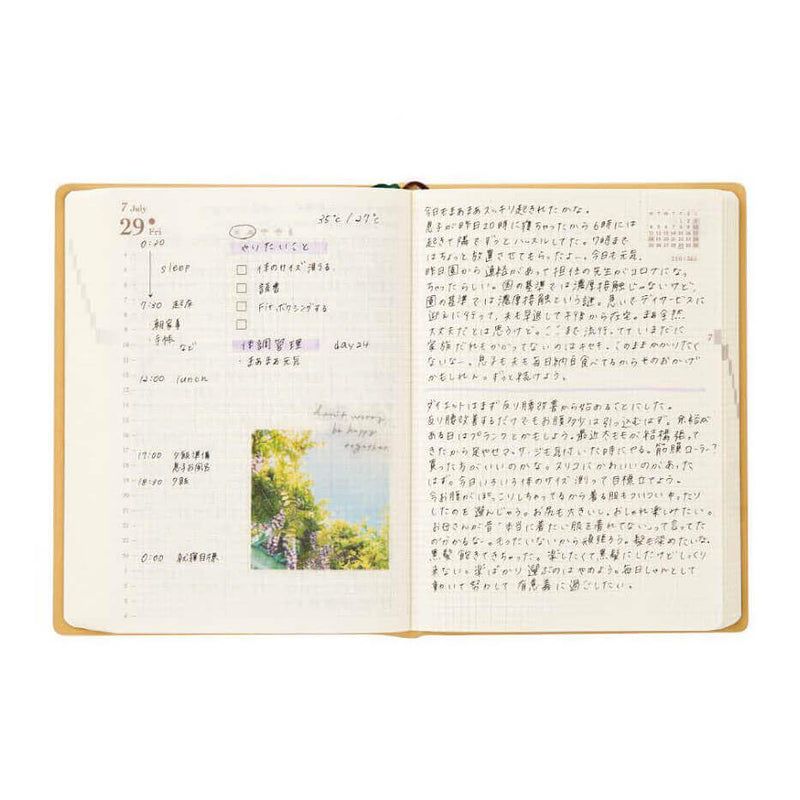 7 July
29 Fri
35℃ / 27℃
0:20
sleep
7:30 起床
朝家事
手帳
など
12:00 lunch
17:00 夕飯準備
息子お風呂
18:30 夕飯
0:00 就寝目標
やりたいこと
体のサイズ測る
読書
Fitボクシングする
体調管理 day24
・まあまあ元気
don't worry,
be happy
together
210/365
今日もまあまあスッキリ起きれたかな。
息子が昨日20時に寝ちゃったから6時には
起きて隣でずっとハッスルしてた。7時まで
はちょっと放置させてもらったよー。今日も元気。
昨日園から連絡があって担任の先生がコロナになっ
ちゃったらしい。国の基準では濃厚接触じゃないけど、
園の基準では濃厚接触という謎。急いでデイサービスに
迎えに行って、夫も早退して午後から在宅。まぁ全然
大丈夫だとは思うけど。ここまで流行ってていまだに
家族だれもかかってないのはキセキ。このままかかりたく
ないなー。息子も夫も毎日納豆食べてるからそのおかげ
かもしれん。ずっと続けよう。
ダイエットはまず反り腰改善から始めることにした。
反り腰改善するだけでもお腹多少は引っ込むはず。余裕が
ある日はプランクとかもしよう。最近太ももが結構張って
きたから足やせマッサージも気付いた時にやる。筋膜ローラー？
買った方がいいのかな。スリコにかわいいのがあった
はず。今日いろいろ体のサイズ測って目標立てよう。
今お腹がぽっこりしちゃってるから着る服もついついゆったり
したのを選んじゃう。お尻も大きいし。おしゃれ楽しみたい。
お母さんが昔「本当に着たい服を着れてない」って言ってた
のがわかるな。もったいないから頑張ろう。髪も染めたいな、
黒髪飽きてきちゃった。楽したくて黒髪にしたけどしっくり
来ない。楽ばかり選ぶのはやめよう。毎日しゃんとして
動いて努力して有意義に過ごしたい。